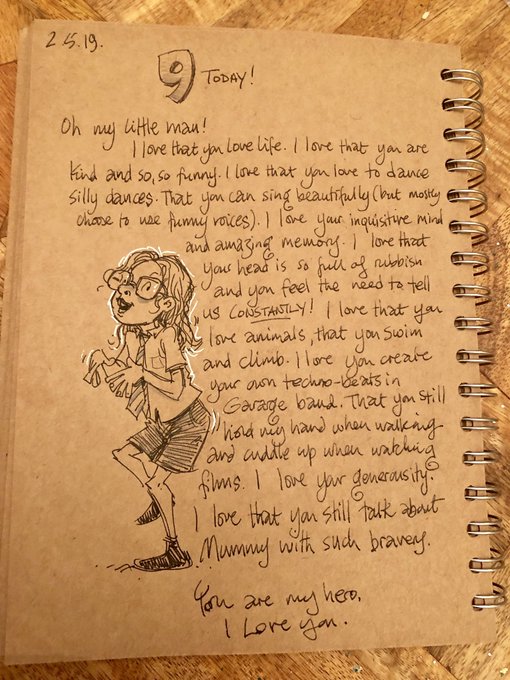 2.5.19.
9 TODAY!
Oh my little man!
I love that you love life. I love that you are
kind and so, so funny. I love that you love to dance
silly dances. That you can sing beautifully (but mostly
choose to use funny voices). I love your inquisitive mind
and amazing memory. I love that
your head is so full of rubbish
and you feel the need to tell
us CONSTANTLY! I love that you
love animals, that you swim
and climb. I love you create
your own techno-beats in
Garage band. That you still
hold my hand when walking
and cuddle up when watching
films. I love your generousity.
I love that you still talk about
Mummy with such bravery.
You are my hero.
I Love you.